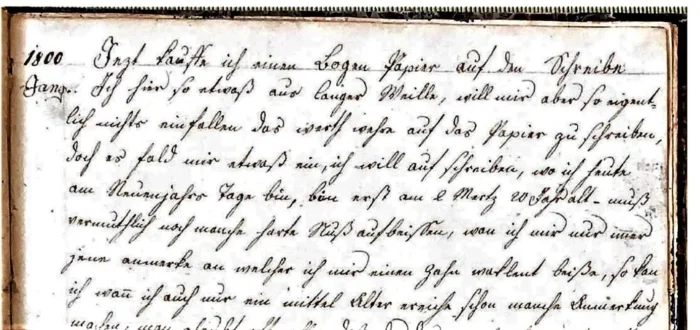 1800 Jezt kauffe ich einen Bogen Papier auf den Schreibe
Gang. Ich hier so etwaß aus langer Weille, will mir aber so eigent-
lich nichts einfallen das werth wehre auf das Papier zu schreiben,
doch es fald mir etwaß ein, ich will auf schreiben, wo ich heute
am Neuenjahrs Tage bin, bin erst am 2 Mertz 20 Jahr alt - muß
vermuthlich noch manche harte Nuß aufbeissen, wan ich mir nur immer
jene anmerke an welcher ich mir einen Zahn waklent beiße, so kan
ich wan ich auch nur ein mittel Alter ereiche schon manche Anmerkung
machen, man